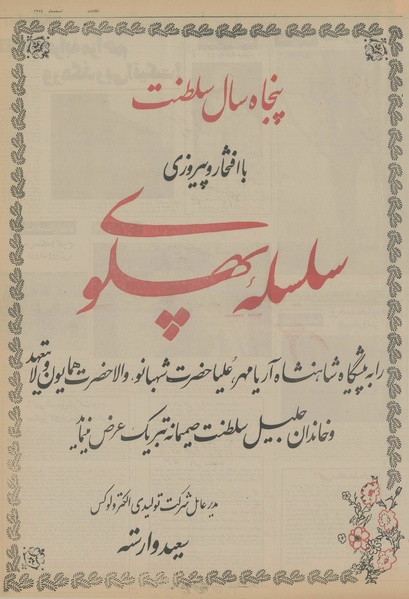 پنجاه سال سلطنت
با افتخار و پیروزی
سلسلهٔ پهلوی
را به پیشگاه شاهنشاه آریامهر، علیاحضرت شهبانو، والاحضرت همایون ولایتعهد
و خاندان جلیل سلطنت صمیمانه تبریک عرض مینماید
مدیر عامل شرکت تولیدی الکترولوکس
سعید وارسته